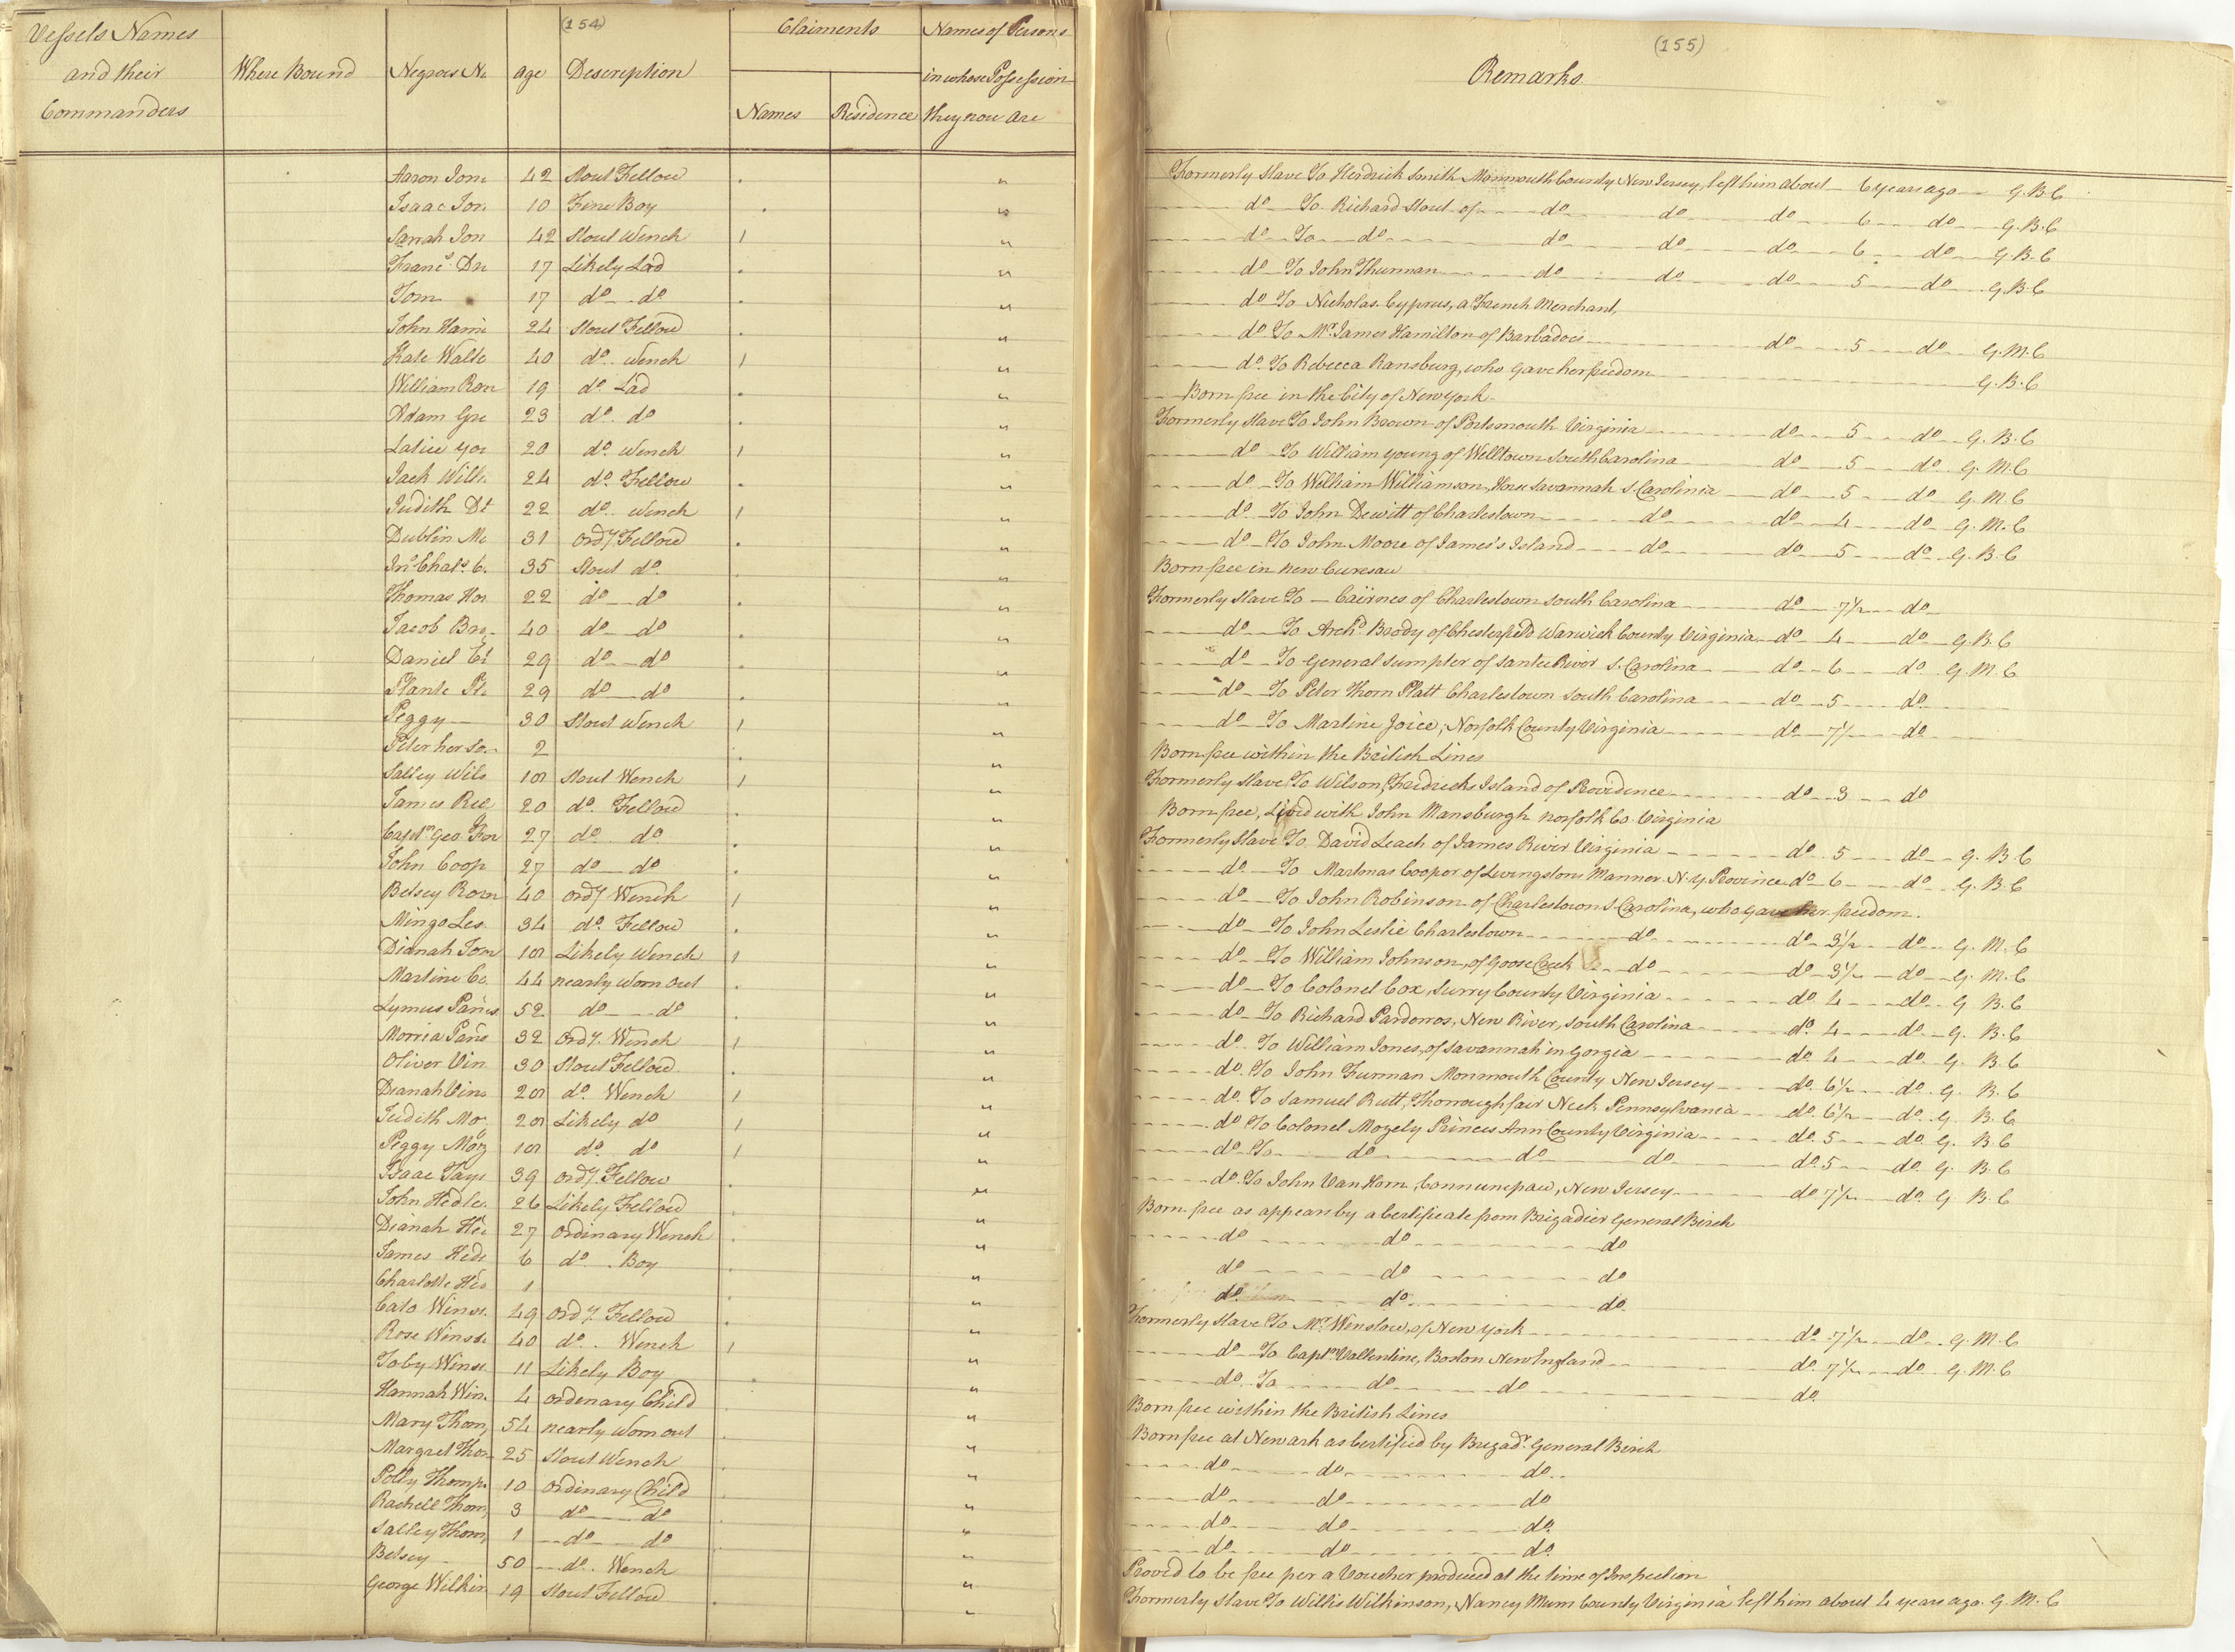 (154)
Vessels Names and their Commanders
Where Bound
Negroes N
Age
Description
Claiments
Names
Residence
Names of Persons in whose Possession they now are
Aaron Jone 42 Stout Fellow "
Isaac Jon 10 Fine Boy "
Sarah Jon 42 Stout Wench 1 "
Franc.s Dr 17 Likely Lad "
Tom 17 do do "
John Hami 24 Stout Fellow "
Kate Walte 40 do Wench 1 "
William Rom 19 do Lad "
Adam Gre 23 do do "
Latice You 20 do Wench 1 "
Jack Willi 24 do Fellow "
Judith D 22 do Wench 1 "
Dublin Mo 31 Ordy Fellow "
Jno Chas C. 35 Stout do "
Thomas Hor 22 do do "
Jacob Bro 40 do do "
Daniel El 29 do do "
Plante Pl 29 do do "
Peggy 30 Stout Wench 1 "
Peter her So 2 "
Salley Wils 18 Stout Wench 1 "
James Ree 20 do Fellow "
Captn Geo For 27 do do "
John Coop 27 do do "
Betsey Row 40 Ordy Wench 1 "
Mingo Les 34 do Fellow "
Dianah Jom 18 Likely Wench 1 "
Martine Co 44 nearly Worn out "
Lymus Parris 52 do do "
Morria Paris 32 Ordy Wench 1 "
Oliver Vin 30 Stout Fellow "
Dianah Vins 28 do Wench 1 "
Judith Mo 28 Likely do 1 "
Peggy Moz 18 do do 1 "
Isaac Tayl 39 Ordy Fellow "
John Hedle 26 Likely Fellow "
Dianah Hed 27 Ordinary Wench "
James Hede 6 do Boy "
Charlotte Hed 1 "
Cato Wins 49 Ordy Fellow "
Rose Winsl 40 do Wench 1 "
Toby Winsl 11 Likely Boy "
Hannah Win 4 Ordenary Child "
Mary Thom 54 nearly Worn out "
Margret Thom 25 Stout Wench "
Polly Thomp 10 Ordinary Child "
Rachell Thom 3 do do "
Salley Thom 1 do do "
Betsey 50 do Wench "
George Wilkin 19 Stout Fellow "
(155)
Remarks
Formerly Slave To Hendrick Smith Monmouth County New Jersey, left him about 6 years ago G.B.C
do To Richard Stout of do do do 6 do G.B.C
do To do do do do 6 do G.B.C
do To John Thurman do do do 5 do G.B.C
do To Nicholas Cyprus, a French Merchant,
do To Mr James Hamilton of Barbadoes do 5 do G.M.C
do To Rebecca Ransburg, who gave her freedom G.B.C
Born free in the City of New York
Formerly Slave To John Brown of Portsmouth Virginia do 5 do G.B.C
do To William Young of Welltown South Carolina do 5 do G.M.C
do To William Williamson, Horse Savannah S. Carolinia do 5 do G.M.C
do To John Dewitt of Charlestown do do 4 do G.M.C
do To John Moore of James's Island do do 5 do G.B.C
Born free in New Curesau
Formerly Slave To — Cairnes of Charlestown South Carolina do 7½ do
do To Archd Brody of Chesterfield Warwick County Virginia do 4 do G.B.C
do To General Sumpter of Santee River S. Carolina do 6 do G.M.C
do To Peter Thorn Platt Charlestown South Carolina do 5 do
do To Martine Joice, Norfolk County Virginia do 7½ do
Born free within the British Lines
Formerly Slave To Wilson, Fredricks Island of Providence do 3 do
Born free, Lived with John Mansburgh Norfolk Co. Virginia
Formerly Slave To David Leach of James River Virginia do 5 do G.B.C
do To Martinas Cooper of Livingstons Manner N.Y. Province do 6 do G.B.C
do To John Robinson of Charlestown S. Carolina, who gave her freedom.
do To John Leslie Charlestown do do 3½ do G.M.C
do To William Johnson, of Goose Creek do do 3½ do G.M.C
do To Colonel Cox, Surry County Virginia do 4 do G.B.C
do To Richard Pardorros, New River, South Carolina do 4 do G.B.C
do To William Jones, of Savannah in Gorgia do 4 do G.B.C
do To John Furman Monmouth County New Jersey do 6½ do G.B.C
do To Samuel Rutt, Thorroughfair Neck Pennsylvania do 6½ do G.B.C
do To Colonel Mozely Princes Ann County Virginia do 5 do G.B.C
do To do do do do 5 do G.B.C
do To John Van Horn, Connunepaw, New Jersey do 7½ do G.B.C
Born free as appears by a Certificate from Brigadier General Birch
do do do
do do do
do do do
Formerly Slave To Mr Winslow, of New York do 7½ do G.M.C
do To Captn Vallentine, Boston New England do 7½ do G.M.C
do To do do do
Born free within the British Lines
Born free at Newark as Certified by Brigadr General Birch
do do do
do do do
do do do
do do do
Proved to be free per a Voucher produced at the time of Inspection
Formerly Slave To Willis Wilkinson, Nancy Mum County Virginia left him about 4 years ago. G.M.C